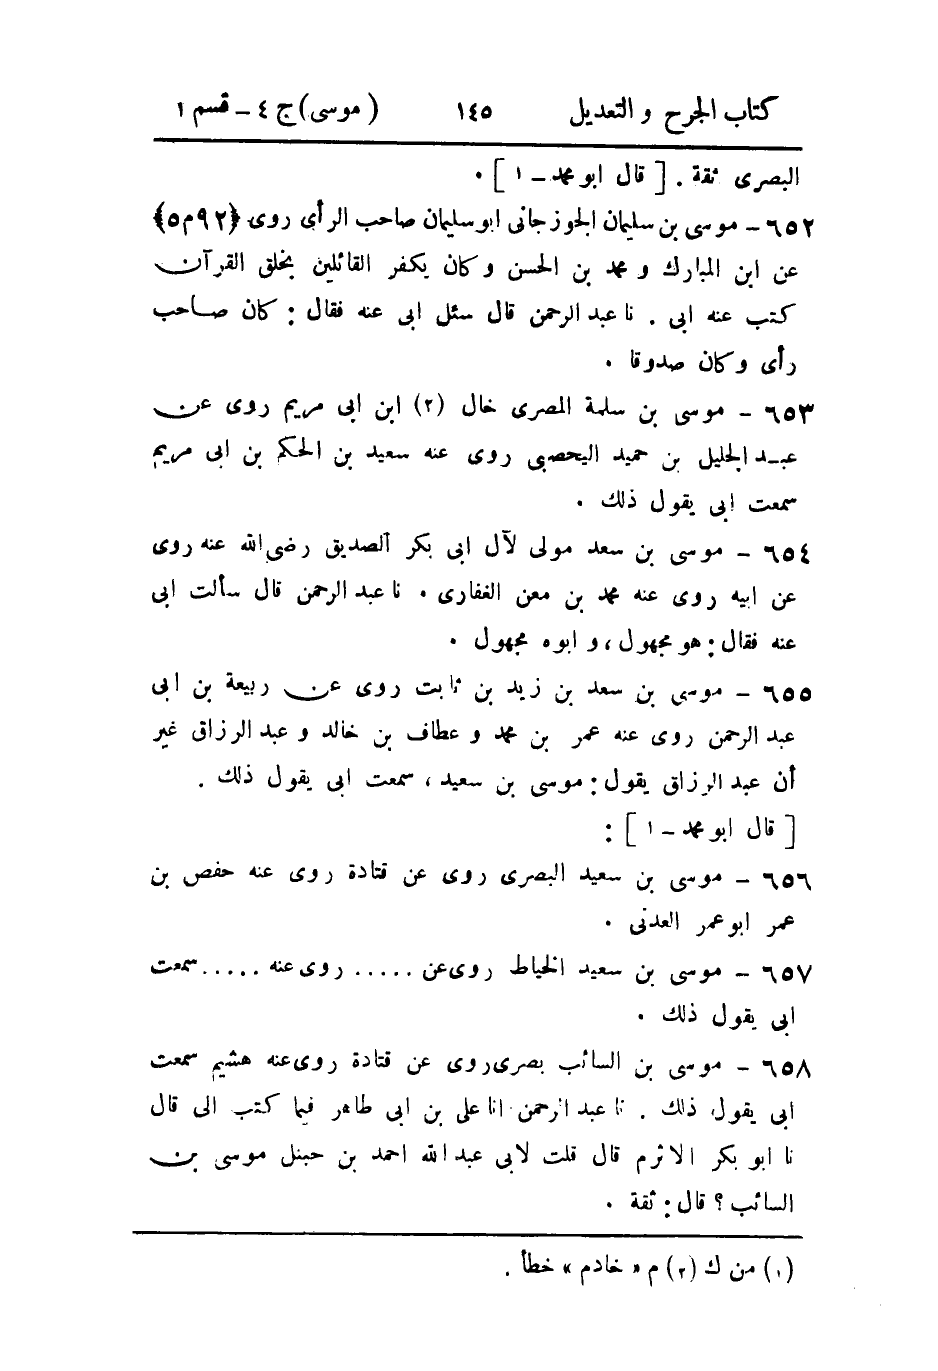 كتاب الجرح و التعديل ١٤٥ (موسى) ج ٤ – قسم ١
البصرى ثقة . [ قال ابو محمد – ١ ] .
٦٥٢ – موسى بن سليمان الجوزجانى ابو سليمان صاحب الرأى روى {٩٢م٥}
عن ابن المبارك و محمد بن الحسن وكان يكفر القائلين بخلق القرآن
كتب عنه ابى . نا عبد الرحمن قال سئل ابى عنه فقال : كان صاحب
رأى وكان صدوقا .
٦٥٣ – موسى بن سلمة المصرى خال (٢) ابن ابى مريم روى عن
عبد الجليل بن حميد اليحصبى روى عنه سعيد بن الحكم بن ابى مريم
سمعت ابى يقول ذلك .
٦٥٤ – موسى بن سعد مولى لآل ابى بكر الصديق رضى الله عنه روى
عن ابيه روى عنه محمد بن معن الغفارى . نا عبد الرحمن قال سألت ابى
عنه فقال : هو مجهول ، و ابوه مجهول .
٦٥٥ – موسى بن سعد بن زيد بن ثابت روى عن ربيعة بن ابى
عبد الرحمن روى عنه عمر بن محمد و عطاف بن خالد و عبد الرزاق غير
أن عبد الرزاق يقول : موسى بن سعيد ، سمعت ابى يقول ذلك .
[ قال ابو محمد – ١ ] :
٦٥٦ – موسى بن سعيد البصرى روى عن قتادة روى عنه حفص بن
عمر ابو عمر العدنى .
٦٥٧ – موسى بن سعيد الخياط روى عن ..... روى عنه ..... سمعت
ابى يقول ذلك .
٦٥٨ – موسى بن السائب بصرى روى عن قتادة روى عنه هشيم سمعت
ابى يقول ذلك . نا عبد الرحمن انا على بن ابى طاهر فيما كتب الى قال
نا ابو بكر الاثرم قال قلت لابى عبد الله احمد بن حنبل موسى بن
السائب ؟ قال : ثقة .
(١) من ك (٢) م « خادم » خطأ .